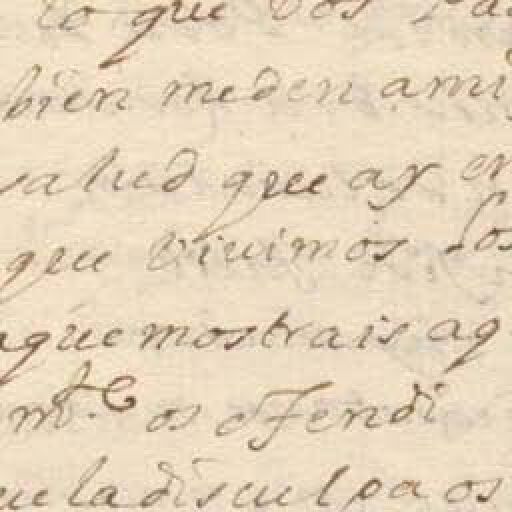 lo que vos
bien meden ami
salud que ay en
que viuimos Los
aque mostrais aq
os ofendi
ue la disculpa os